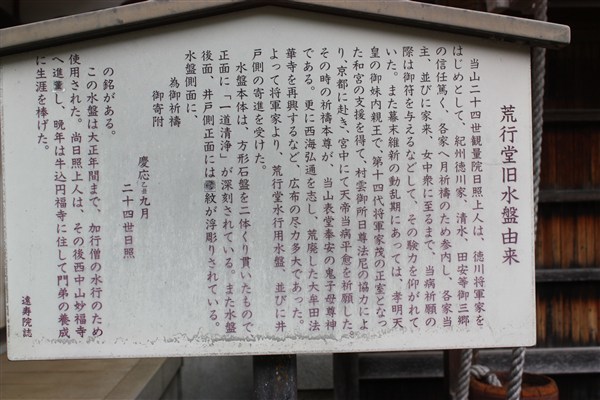 荒行堂旧水盤由来
当山二十四世観量院日照上人は、徳川将軍家を
はじめとして、紀州徳川家、清水、田安等御三郷
の信任篤く、各家へ月祈祷のため参内し、各家当
主、並びに家来、女中衆に至るまで、当病祈願の
際は御符を与えるなどして、その験力を仰がれて
いた。また幕末維新の動乱期にあっては、孝明天
皇の御妹内親王で、第十四代将軍家茂の正室となっ
た和宮の支援を得て、村雲御所日尊法尼の協力によ
り、京都に赴き、宮中にて天帝当病平愈を祈願した。
その時の祈祷本尊が、当山表堂奉安の鬼子母尊神
である。更に西海弘通を志し、荒廃した大牟田法
華寺を再興するなど、広布の尽力多大であった。
よって将軍家より、荒行堂水行用水盤、並びに井
戸側の寄進を受けた。
水盤本体は、方形石盤を二体くり貫いたもので
正面に「一道清浄」が深刻されている。また水盤
後面、井戸側正面には紋が浮彫りされている。
水盤側面に、
為御祈祷
御寄附
慶応乙丑九月
二十四世日照
の銘がある。
この水盤は大正年間まで、加行僧の水行のため
使用された。尚日照上人は、その後西中山妙福寺
へ進薫し、晩年は牛込円福寺に住して門弟の養成
に生涯を捧げた。
遠寿院誌